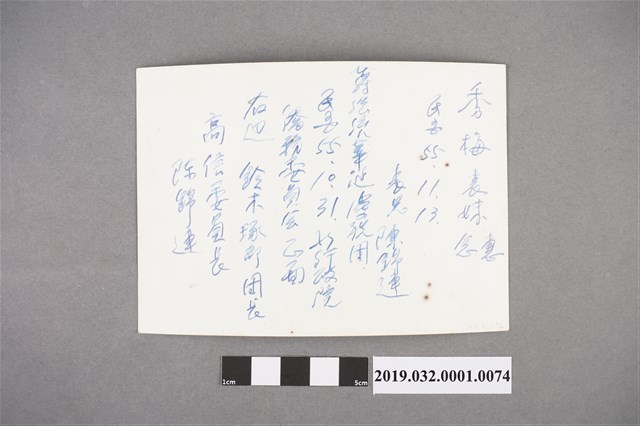 秀梅表妹惠念
民国55.11.13.
表兄陳錦連
蔣總統華誕慶祝团
民国55.10.31.於行政院
僑務委員会正面
右边 鈴木琢郎团長
高信委員長
陈錦連
1cm
5cm
2019.032.0001.0074